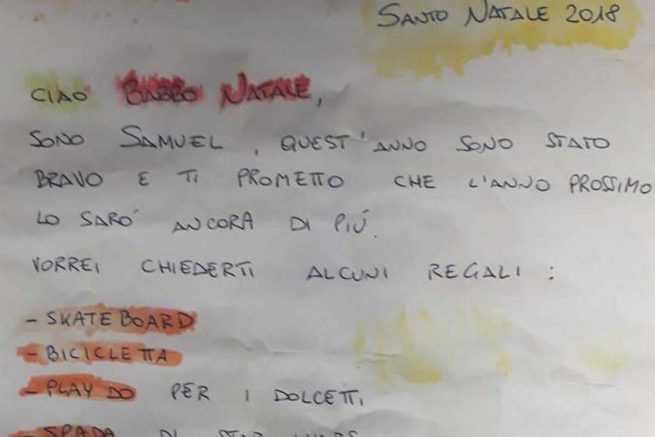 SANTO NATALE 2018
CIAO BABBO NATALE,
SONO SAMUEL, QUEST'ANNO SONO STATO
BRAVO E TI PROMETTO CHE L'ANNO PROSSIMO
LO SARO' ANCORA DI PIÚ.
VORREI CHIEDERTI ALCUNI REGALI:
- SKATEBOARD
- BICICLETTA
- PLAY DO PER I DOLCETTI
- SPADA DI STAR WARS